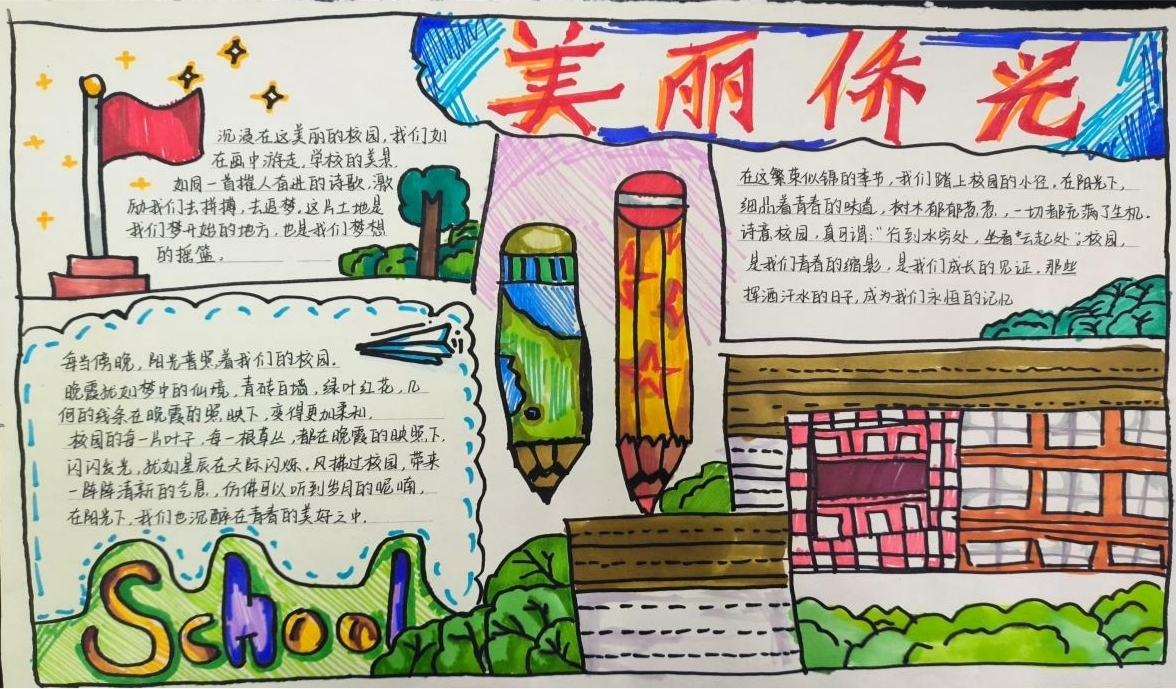 美丽侨光
沉浸在这美丽的校园,我们如
在画中游走,学校的美景,
如同一首摧人奋进的诗歌,激
励我们去拼搏,去追梦。这片土地是
我们梦开始的地方,也是我们梦想
的摇篮。
在这繁荣似锦的季节,我们踏上校园的小径。在阳光下,
细品着青春的味道,树木郁郁葱葱,一切都充满了生机。
诗意校园,真可谓:“行到水穷处,坐看云起处”;校园,
是我们青春的缩影,是我们成长的见证。那些
挥洒汗水的日子,成为我们永恒的记忆
每当傍晚,阳光普照着我们的校园。
晚霞犹如梦中的仙境,青砖白墙,绿叶红花,几
何的线条在晚霞的照映下,变得更加柔和。
校园的每一片叶子,每一根草丛,都在晚霞的映照下,
闪闪发光,犹如星辰在天际闪烁。风拂过校园,带来
一阵阵清新的气息,仿佛可以听到岁月的呢喃,
在阳光下,我们也沉醉在青春的美好之中。
School